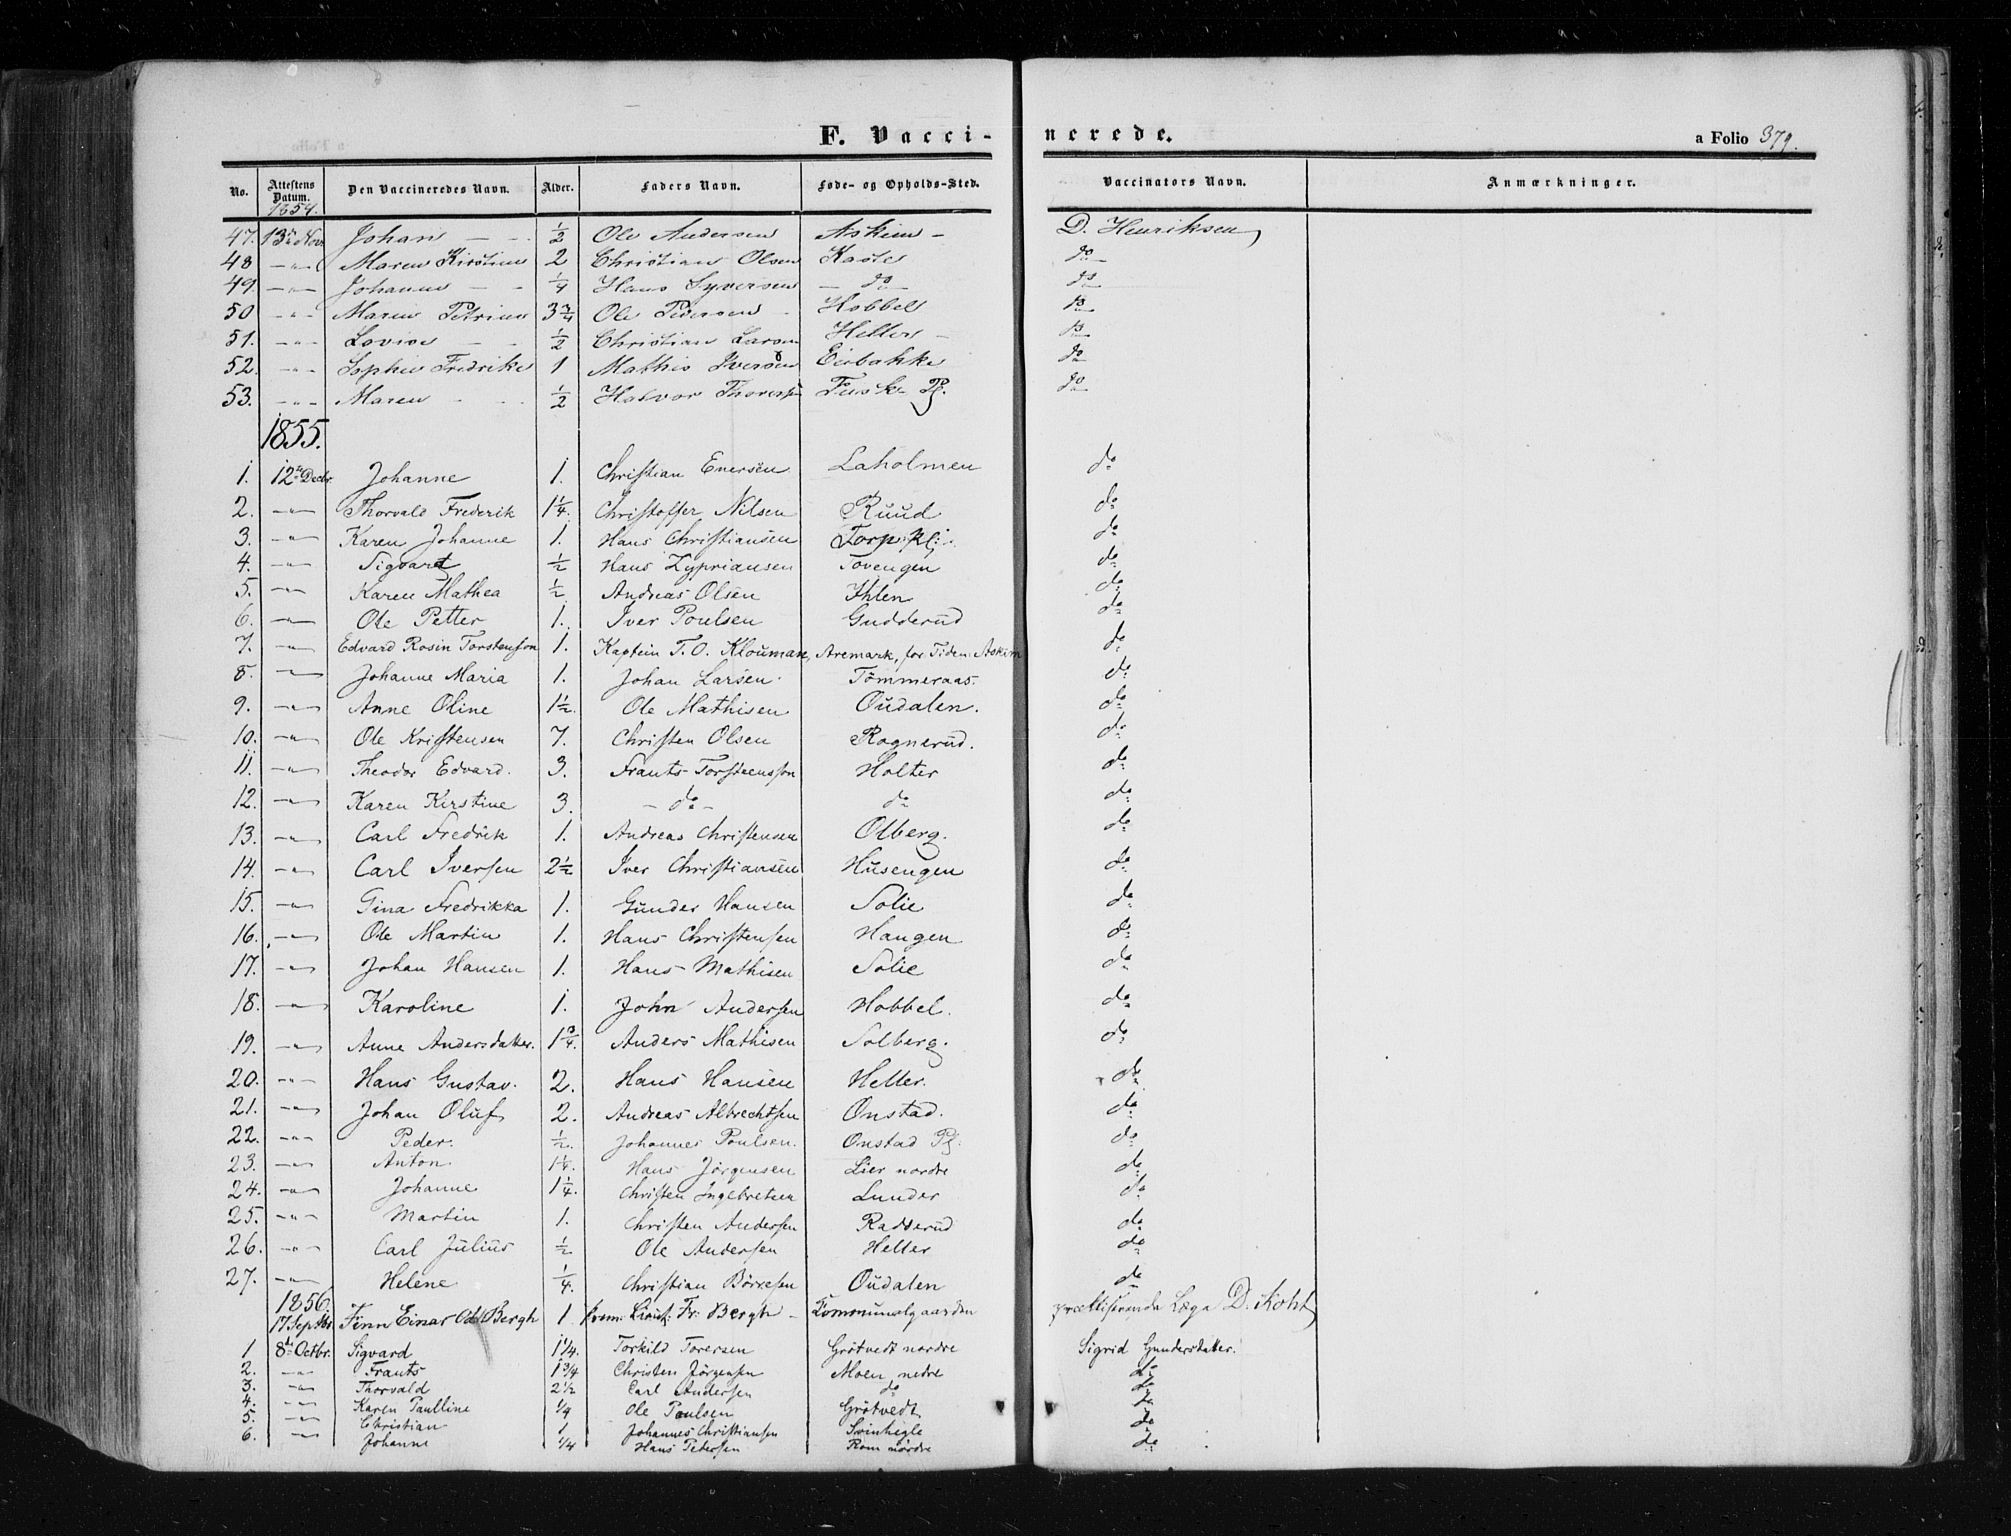 F. Vacci-nerede.
a Folio 379.
No. Attestens Datum. Den Vaccineredes Navn. Alder. Faders Navn. Føde- og Opholds-Sted. Vaccinators Navn. Anmærkninger.
1854.
47. 13de Nov Johan - - ½ Ole Andersen Askim - D. Henriksen
48 -"- Maren Kirstine 2 Christian Olsen Kaste do
49. -"- Johanne - - ¼ Hans Syversen - do - do
50 -"- Maren Petrine 3¾ Ole Pedersen - Hobbel do
51. -"- Lovise - - ½ Christian Larsen Heller - do
52. -"- Sophie Fredrikke 1 Mathis Iversen Eidbakke do
53. -"- Maren - - ½ Halvor Thoresen Fusk Pl. do
1855.
1. 12te Decbr. Johanne 1. Christian Enersen Laholmen do
2. -"- Thorvald Frederik 1¼. Christoffer Nilsen Ruud do
3. -"- Karen Johanne 1. Hans Christiansen Torp Pl: do
4. -"- Sigvart ½ Hans Zypriansen Tovengen do
5. -"- Karen Mathea ½. Andreas Olsen Ihlen do
6. -"- Ole Petter 1. Iver Poulsen Gudderud do
7. -"- Edvard Rosin Torstenson 1. Kaptein T. O. Klouman, Aremark, for Tiden Askim do
8. -"- Johanne Maria 1. Johan Larsen. Tømmeraas. do
9. -"- Anne Oline 1½. Ole Mathisen Oudalen. do
10. -"- Ole Kristensen 7. Christen Olsen Rognerud. do
11. -"- Theodor Edvard. 3. Frants Torsteensson Holter do
12. -"- Karen Kirstine 3. - do - do do
13. -"- Carl Fredrik 1. Andreas Christensen Olberg. do
14. -"- Carl Iversen 2½ Iver Christiansen Husengen do
15. -"- Gina Fredrikka 1. Gunder Hansen Solie do
16. -"- Ole Martin 1. Hans Christensen Haugen do
17. -"- Johan Hansen 1. Hans Mathisen Solie do
18. -"- Karoline 1. John Andersen Hobbel. do
19. -"- Anne Andersdatter. 1¾. Anders Mathisen Solberg. do
20. -"- Hans Gustav. 2. Hans Hansen Heller. do
21. -"- Johan Oluf 2. Andreas Albrechtsen Onstad. do
22. -"- Peder. ½. Johannes Poulsen. Onstad Pl. do
23. -"- Anton 1¼. Hans Jørgensen Lier nordre do
24. -"- Johanne 1¼. Christen Ingebretsen Lunder do
25. -"- Martin 1. Christen Andersen Radderud do
26. -"- Carl Julius ½ Ole Andersen Heller do
27. -"- Helene ¼. Christian Børresen Oudalen do
1856.
17 Septbr Finn Einar Od Bergh 1 Prem: Lieut: Fr: Bergh - Kommunalgaarden practiserende Læge D. Koht
1 8de Octbr. Sigvard 1¼. Torkild Torersen Grøtvedt nordre Sigrid Gundersdatter.
2. -"- Frants 1¾ Christen Jørgensen Moen nedre do
3. -"- Thorvald 2½ Carl Andersen do do
4. -"- Karen Paulline ¼ Ole Poulsen Grøtvedt do
5. -"- Christian 1 Johannes Christiansen Svinhigle do
6. -"- Johanne ¼ Hans Petersen Rom nørdre do